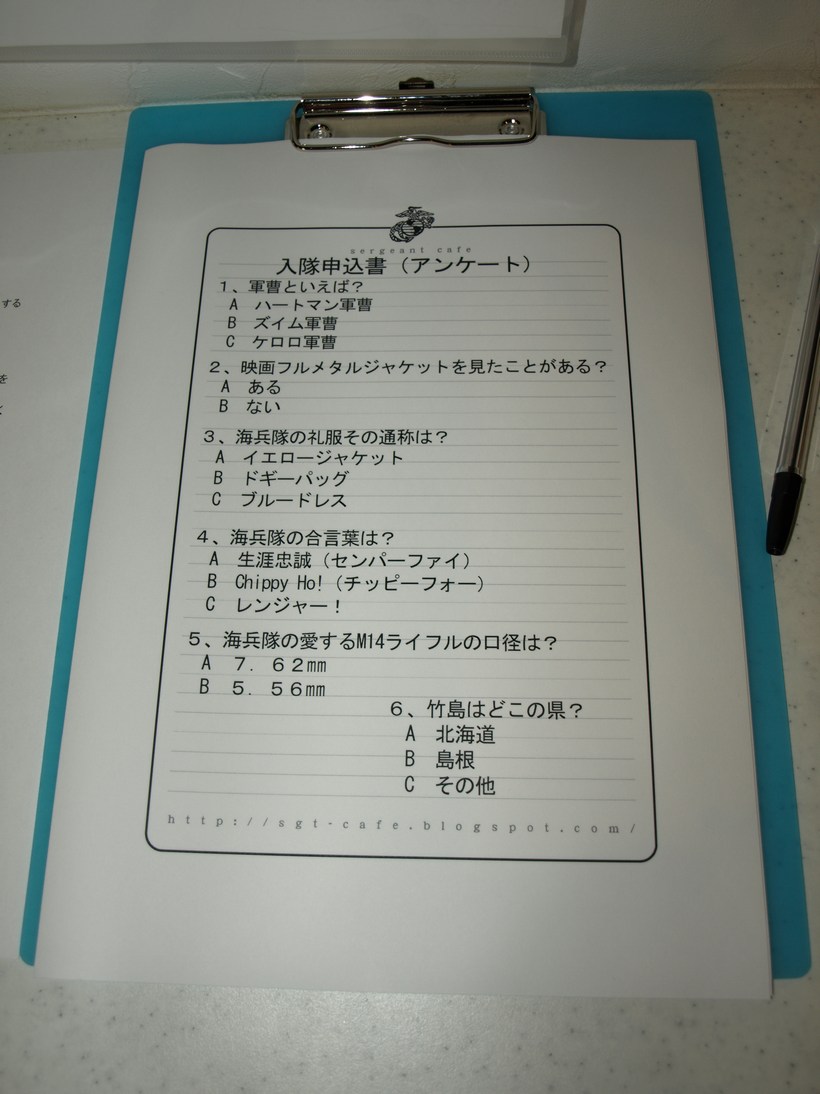 sergeant cafe
入隊申込書（アンケート）
１、軍曹といえば？
A　ハートマン軍曹
B　ズイム軍曹
C　ケロロ軍曹
２、映画フルメタルジャケットを見たことがある？
A　ある
B　ない
３、海兵隊の礼服その通称は？
A　イエロージャケット
B　ドギーバッグ
C　ブルードレス
４、海兵隊の合言葉は？
A　生涯忠誠（センパーファイ）
B　Chippy Ho!（チッピーフォー）
C　レンジャー！
５、海兵隊の愛するM14ライフルの口径は？
A　７．６２mm
B　５．５６mm
６、竹島はどこの県？
A　北海道
B　島根
C　その他
http://sgt-cafe.blogspot.com/
する
を